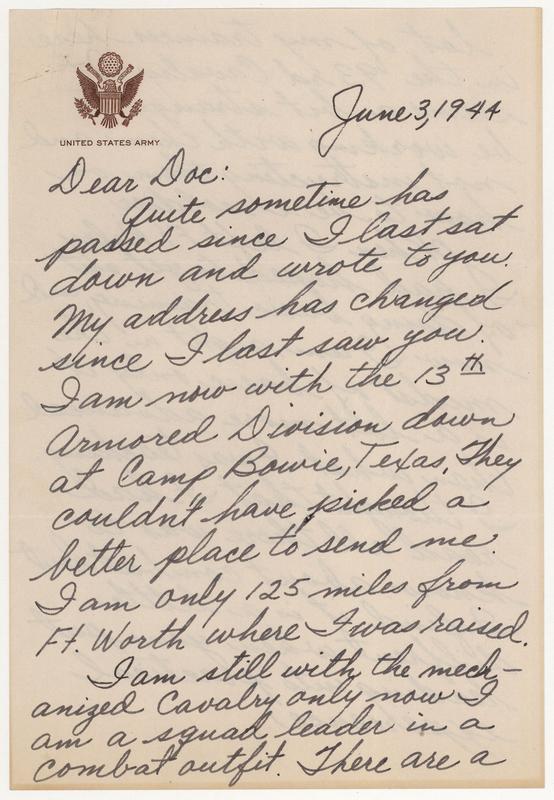 UNITED STATES ARMY
June 3, 1944
Dear Doc:
Quite sometime has
passed since I last sat
down and wrote to you.
My address has changed
since I last saw you.
I am now with the 13th
Armored Division down
at Camp Bowie, Texas. They
couldn't have picked a
better place to send me.
I am only 125 miles from
Ft. Worth where I was raised.
I am still with the mech-
anized Cavalry only now I
am a squad leader in a
combat outfit. There are a